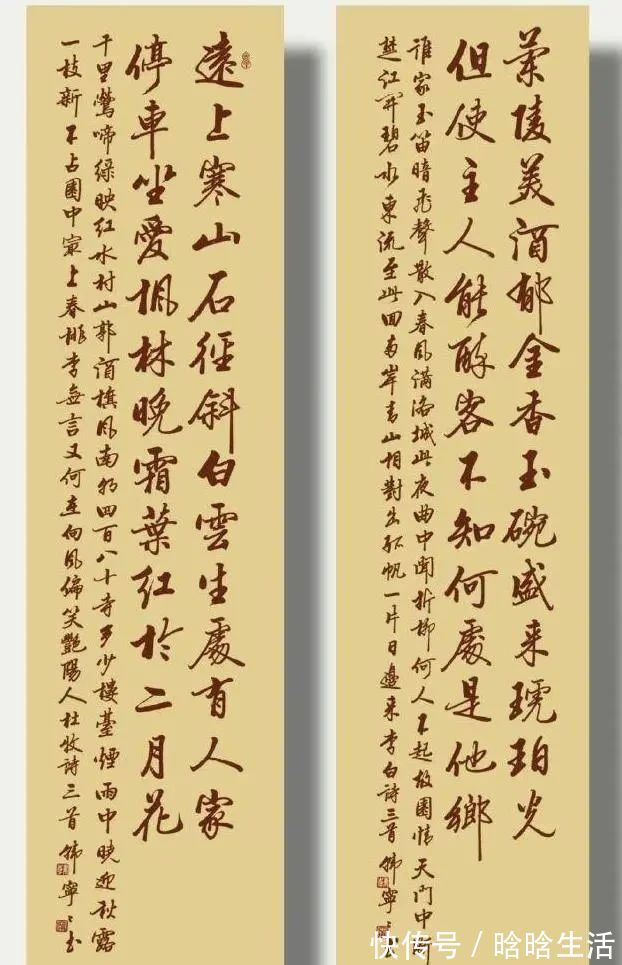 蘭陵美酒郁金香玉碗盛来琥珀光
但使主人能醉客不知何處是他鄉
谁家玉笛暗飛聲散入春風满洛城此夜曲中聞折柳何人不起故園情天門中斷
楚江開碧水東流至此回两岸青山相對出孤帆一片日邊来李白詩三首韩寧书
遠上寒山石徑斜白雲生處有人家
停車坐愛楓林晚霜葉紅於二月花
千里鶯啼绿映红水村山郭酒旗風南朝四百八十寺多少樓臺煙雨中曉迎秋露
一枝新不占園中最上春桃李無言又何在向風偏笑艷陽人杜牧詩三首韩寧书
快传号／晗晗生活